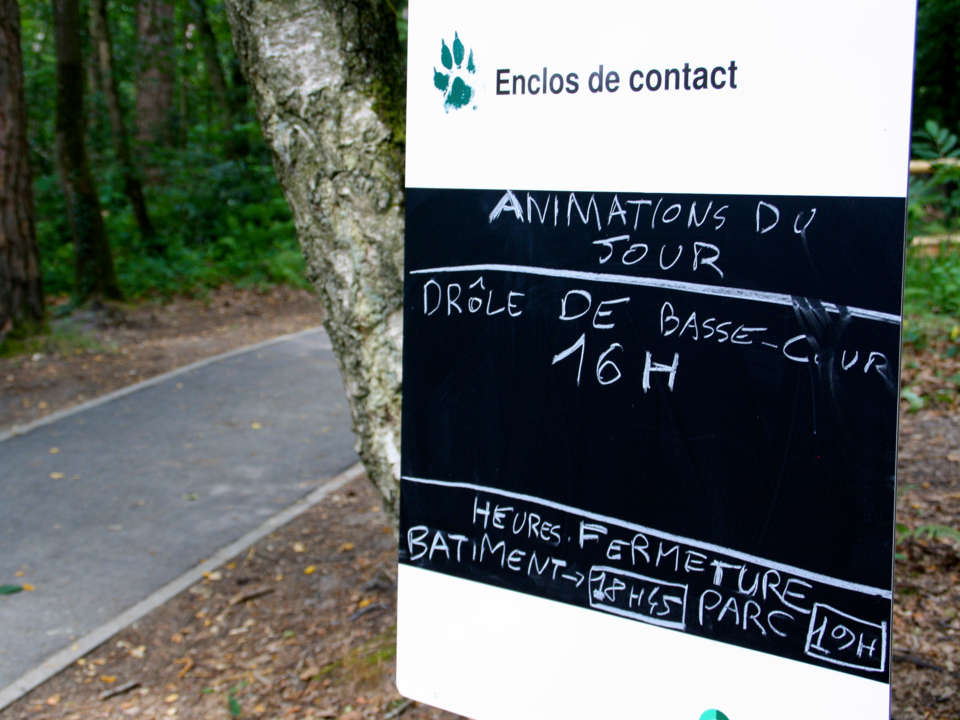 Enclos de contact
ANIMATIONS DU
JOUR
DRÔLE DE BASSE-COUR
16H
HEURES. FERMETURE
BATIMENT→ 18H45 PARC 19H